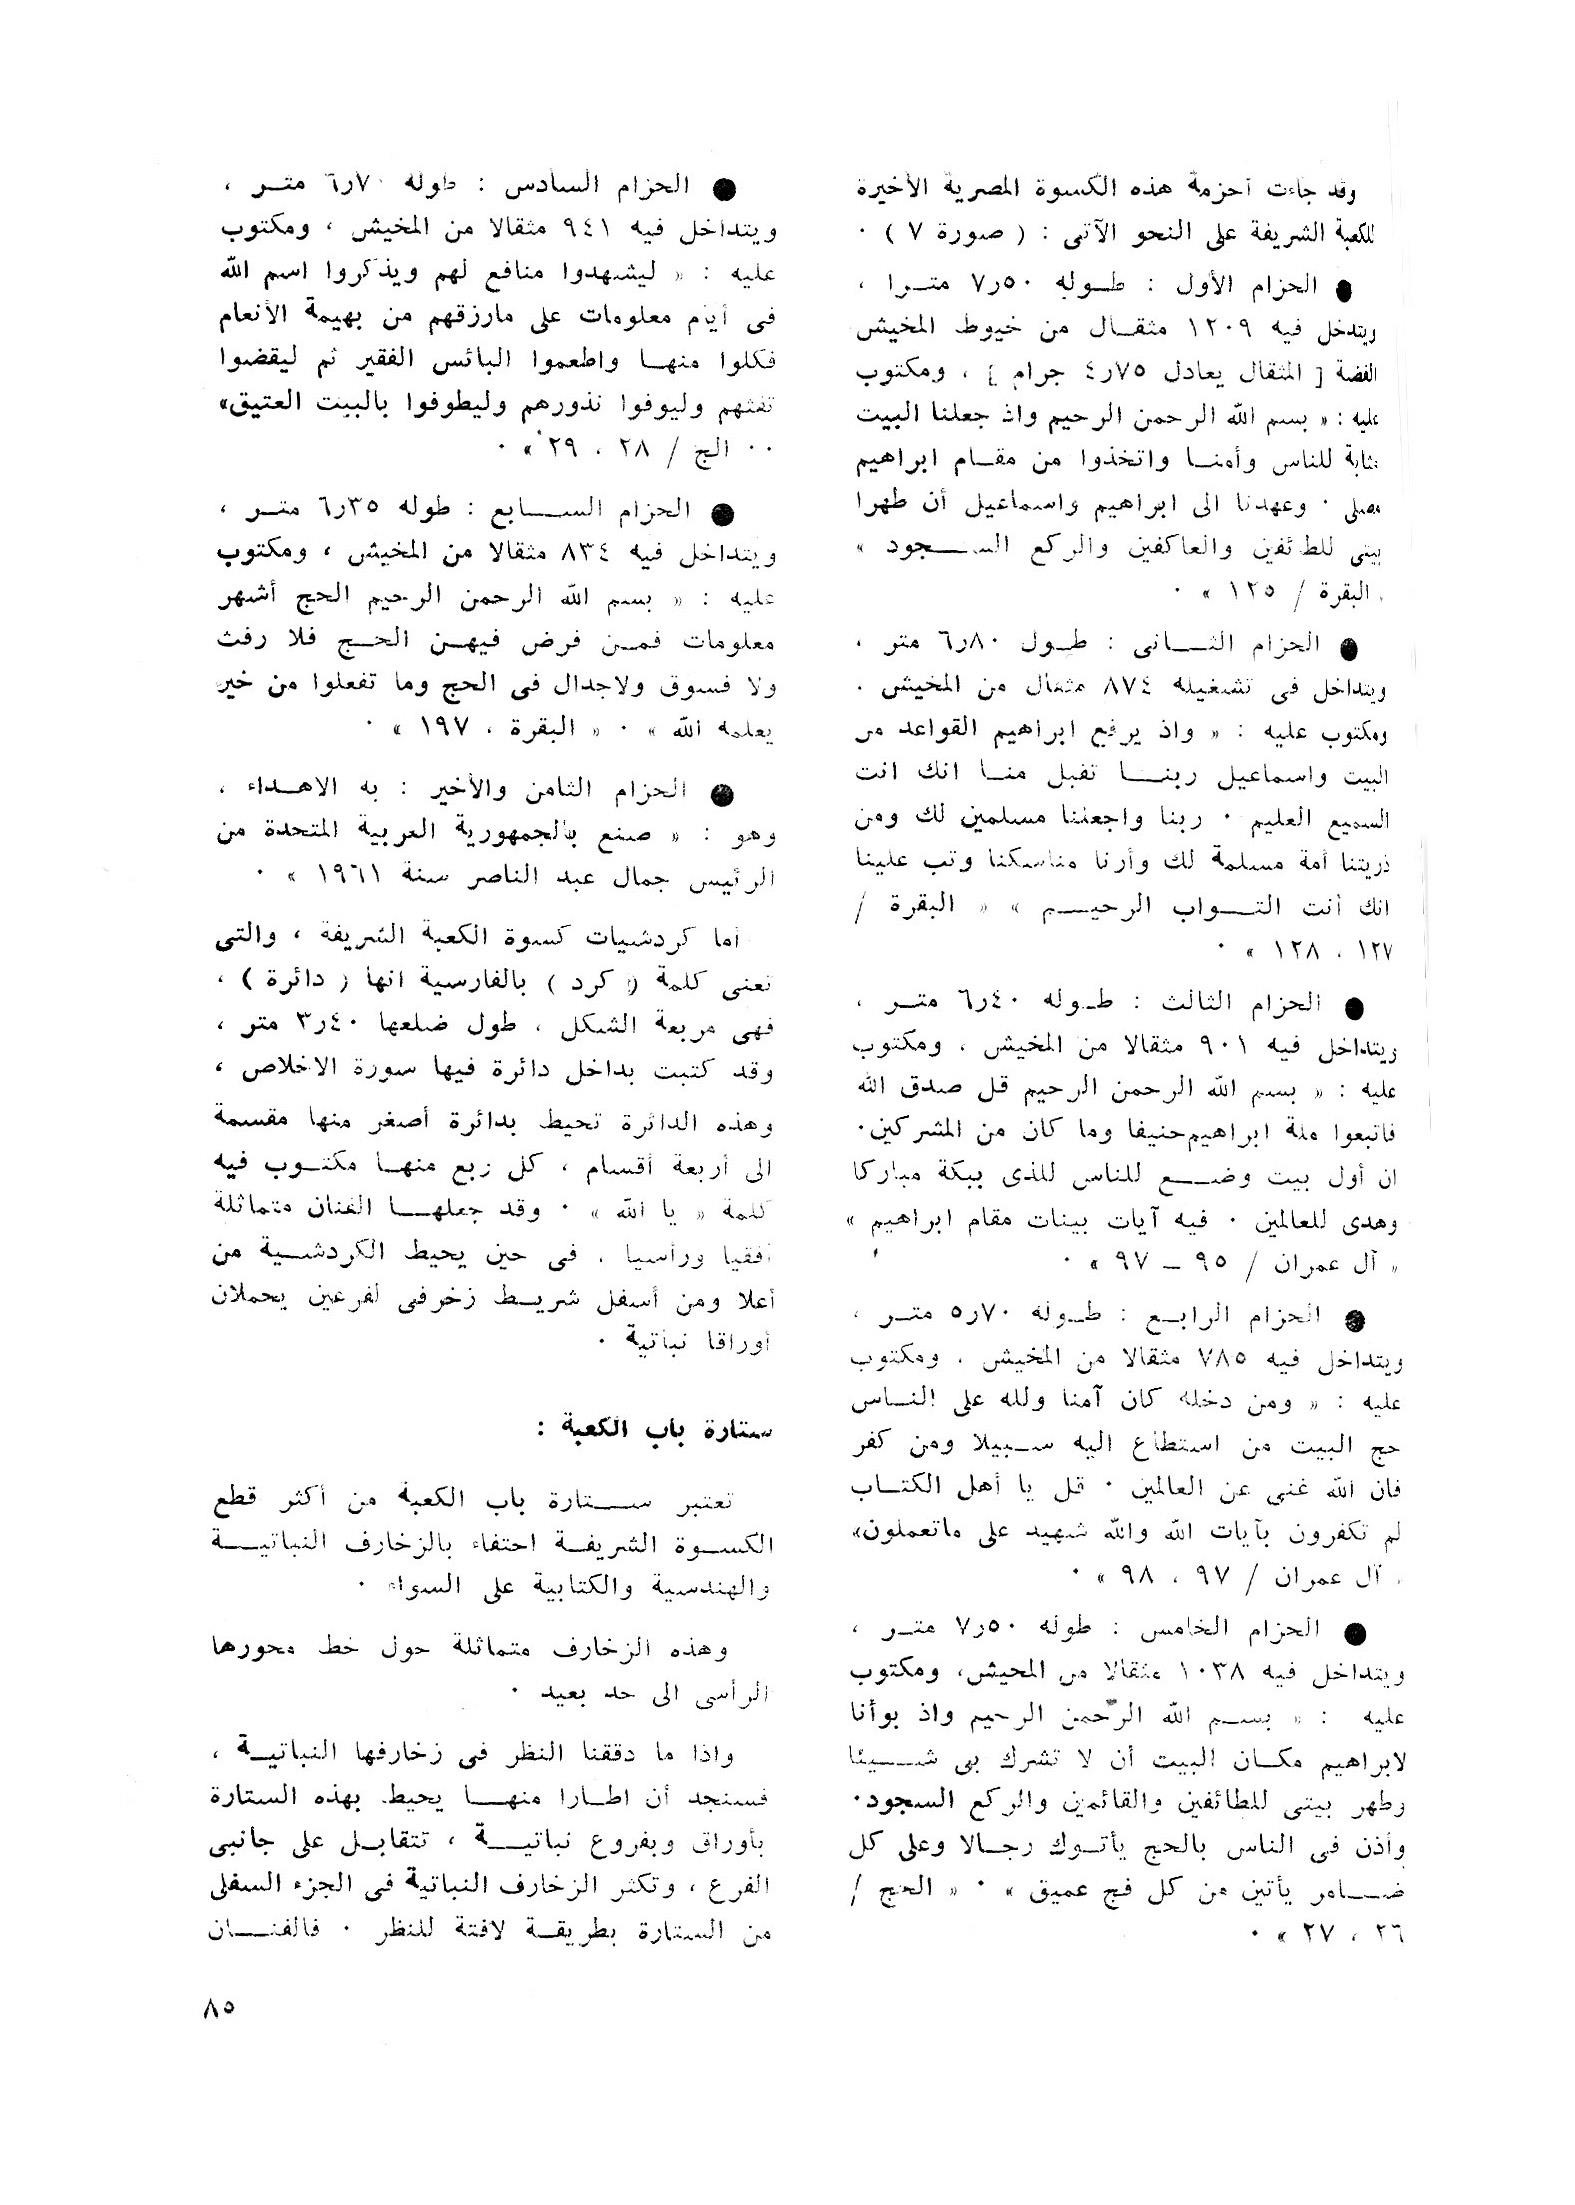 وقد جاءت أحزمة هذه الكسوة المصرية الأخيرة
للكعبة الشريفة على النحو الآتى : ( صورة ٧ ) ٠
● الحزام الأول : طــوله ٧٫٥٠ متــرا ،
ويتدخل فيه ١٢٠٩ مثقــال من خيوط المخيش
الفضة [ المثقال يعادل ٤٫٧٥ جرام ] ، ومكتوب
عليه : « بسم الله الرحمن الرحيم واذ جعلنا البيت
مثابة للناس وأمنــا واتخذوا من مقــام ابراهيم
مصلى ٠ وعهدنا الى ابراهيم واسماعيل أن طهرا
بيتى للطائفين والعاكفين والركع الســـجود »
« البقرة / ١٢٥ » ٠
● الحزام الثـــانى : طــول ٦٫٨٠ متر ،
ويتداخل فى تشغيله ٨٧٤ مثقال من المخيش ٠
ومكتوب عليه : « واذ يرفع ابراهيم القواعد من
البيت واسماعيل ربنـــا تقبل منــا انك انت
السميع العليم ٠ ربنا واجعلنا مسلمين لك ومن
ذريتنا أمة مسلمة لك وأرنا مناسكنا وتب علينا
انك أنت التــواب الرحيــم » « البقرة /
١٢٧ ، ١٢٨ » ٠
● الحزام الثالث : طــوله ٦٫٤٠ متــر ،
ويتداخل فيه ٩٠١ مثقالا من المخيش ، ومكتوب
عليه : « بسم الله الرحمن الرحيم قل صدق الله
فاتبعوا ملة ابراهيم حنيفا وما كان من المشركين٠
ان أول بيت وضــع للناس للذى ببكة مباركا
وهدى للعالمين ٠ فيه آيات بينات مقام ابراهيم »
« آل عمران / ٩٥ ــ ٩٧ » ٠
● الحزام الرابــع : طــوله ٥٫٧٠ متــر ،
ويتداخل فيه ٧٨٥ مثقالا من المخيش ، ومكتوب
عليه : « ومن دخله كان آمنا ولله على النــاس
حج البيت من استطاع اليه ســبيلا ومن كفر
فان الله غنى عن العالمين ٠ قل يا أهل الكتــاب
لم تكفرون بآيات الله والله شهيد على ماتعملون»
« آل عمران / ٩٧ ، ٩٨ » ٠
● الحزام الخامس : طوله ٧٫٥٠ متــر ،
ويتداخل فيه ١٠٣٨ مثقالا من المخيش، ومكتوب
عليه : « بســم الله الرحمن الرحيم واذ بوأنا
لابراهيم مكــان البيت أن لا تشرك بى شـــيئا
وطهر بيتى للطائفين والقائمين والركع السجود٠
وأذن فى الناس بالحج يأتــوك رجــالا وعلى كل
ضـــامر يأتين من كل فج عميق » ٠ « الحج /
٢٦ ، ٢٧ » ٠
● الحزام السادس : طوله ٦٫٧٠ متــر ،
ويتداخل فيه ٩٤١ مثقالا من المخيش ، ومكتوب
عليه : « ليشهدوا منافع لهم ويذكروا اسم الله
فى أيام معلومات على مارزقهم من بهيمة الأنعام
فكلوا منهــا واطعموا البائس الفقير ثم ليقضوا
تفثهم وليوفوا نذورهم وليطوفوا بالبيت العتيق»
٠٠ الحج / ٢٨ ، ٢٩ » ٠
● الحزام الســـابع : طوله ٦٫٣٥ متــر ،
ويتداخل فيه ٨٣٤ مثقالا من المخيش ، ومكتوب
عليه : « بسم الله الرحمن الرحيم الحج أشهر
معلومات فمــن فرض فيهــن الحــج فلا رفث
ولا فسوق ولاجدال فى الحج وما تفعلوا من خير
يعلمه الله » ٠ « البقرة ، ١٩٧ » ٠
● الحزام الثامن والأخير : به الاهــداء ،
وهو : « صنع بالجمهورية العربية المتحدة من
الرئيس جمال عبد الناصر سنة ١٩٦١ » ٠
أما كردشيات كسوة الكعبة الشريفة ، والتى
تعنى كلمة ( كرد ) بالفارسية انها ( دائرة ) ،
فهى مربعة الشكل ، طول ضلعها ٣٫٤٠ متر ،
وقد كتبت بداخل دائرة فيها سورة الاخلاص ،
وهذه الدائرة تحيط بدائرة أصغر منها مقسمة
الى أربعة أقسام ، كل ربع منهــا مكتــوب فيه
كلمة « يا الله » ٠ وقد جعلهــا الفنان متماثلة
أفقيا ورأسيا ، فى حين يحيط الكردشــية من
أعلا ومن أسفل شريــط زخرفى لفرعين يحملان
أوراقا نباتية ٠
ستارة باب الكعبة :
تعتبر ســـتارة باب الكعبة من أكثر قطع
الكســوة الشريفــة احتفاء بالزخارف النباتيـــة
والهندسية والكتابية على السواء ٠
وهذه الزخارف متماثلة حول خط محورها
الرأسى الى حد بعيد ٠
واذا ما دققنا النظر فى زخارفها النباتيــة ،
فسنجد أن اطــارا منهـــا يحيط بهذه الستارة
بأوراق وبفروع نباتيـــة ، تتقابــل على جانبى
الفرع ، وتكثر الزخارف النباتية فى الجزء السفلى
من الستارة بطريقــة لافتة للنظر ٠ فالفنـــان
٨٥